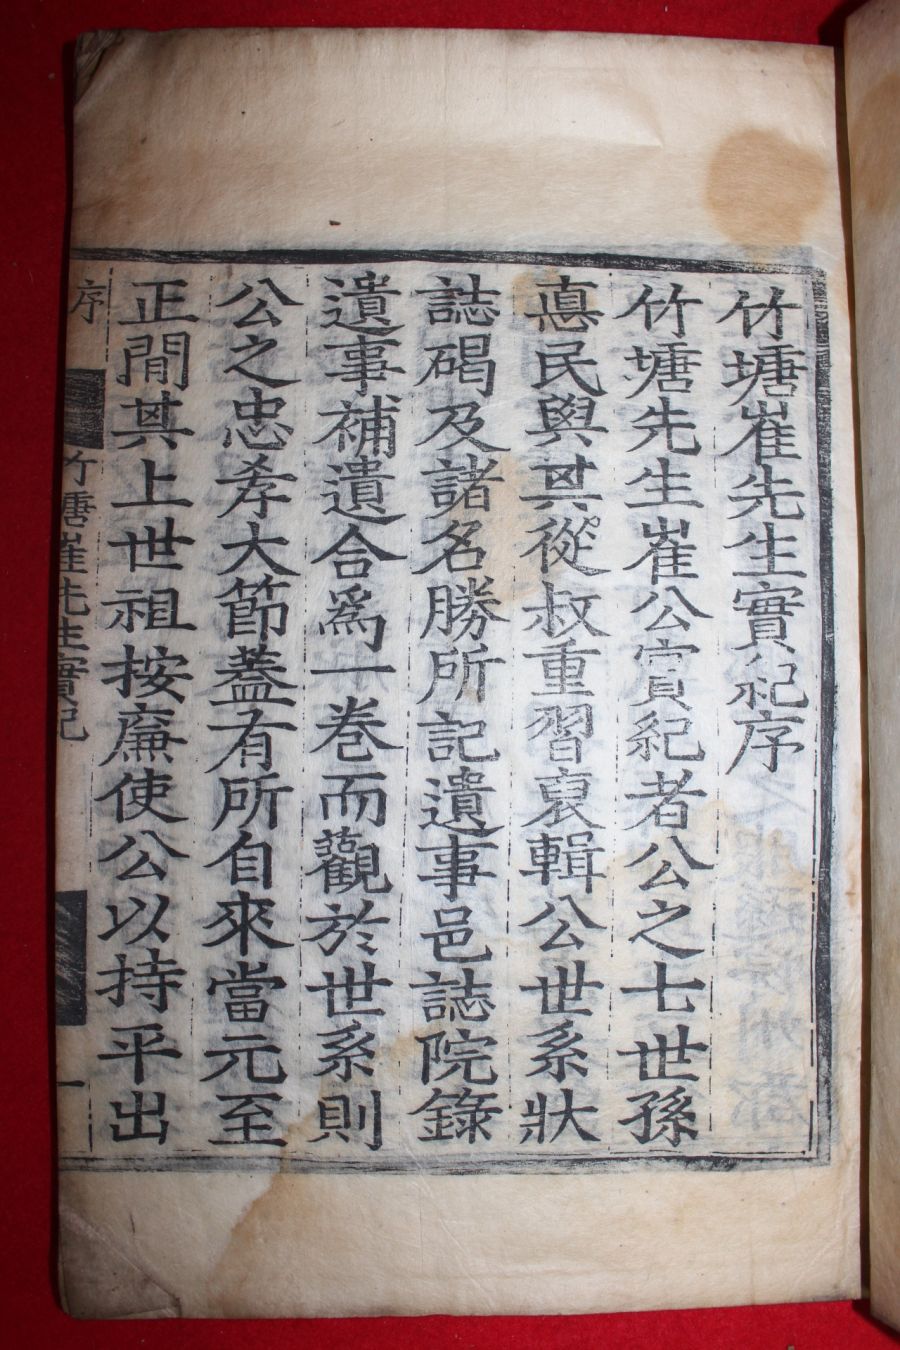 竹塘崔先生實紀序
竹塘先生崔公實紀者公之七世孫
惪民與其從叔重習裒輯公世系狀
誌碣及諸名勝所記遺事邑誌院錄
遺事補遺合爲一卷而觀於世系則
公之忠孝大節蓋有所自來當元至
正間其上世祖按廉使公以持平出
序
竹塘崔先生實紀
一